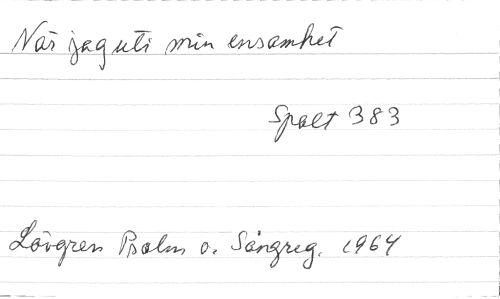 När jag uti min ensamhet
Spalt 383
Lövgren Psalm o. Sångreg. 1964